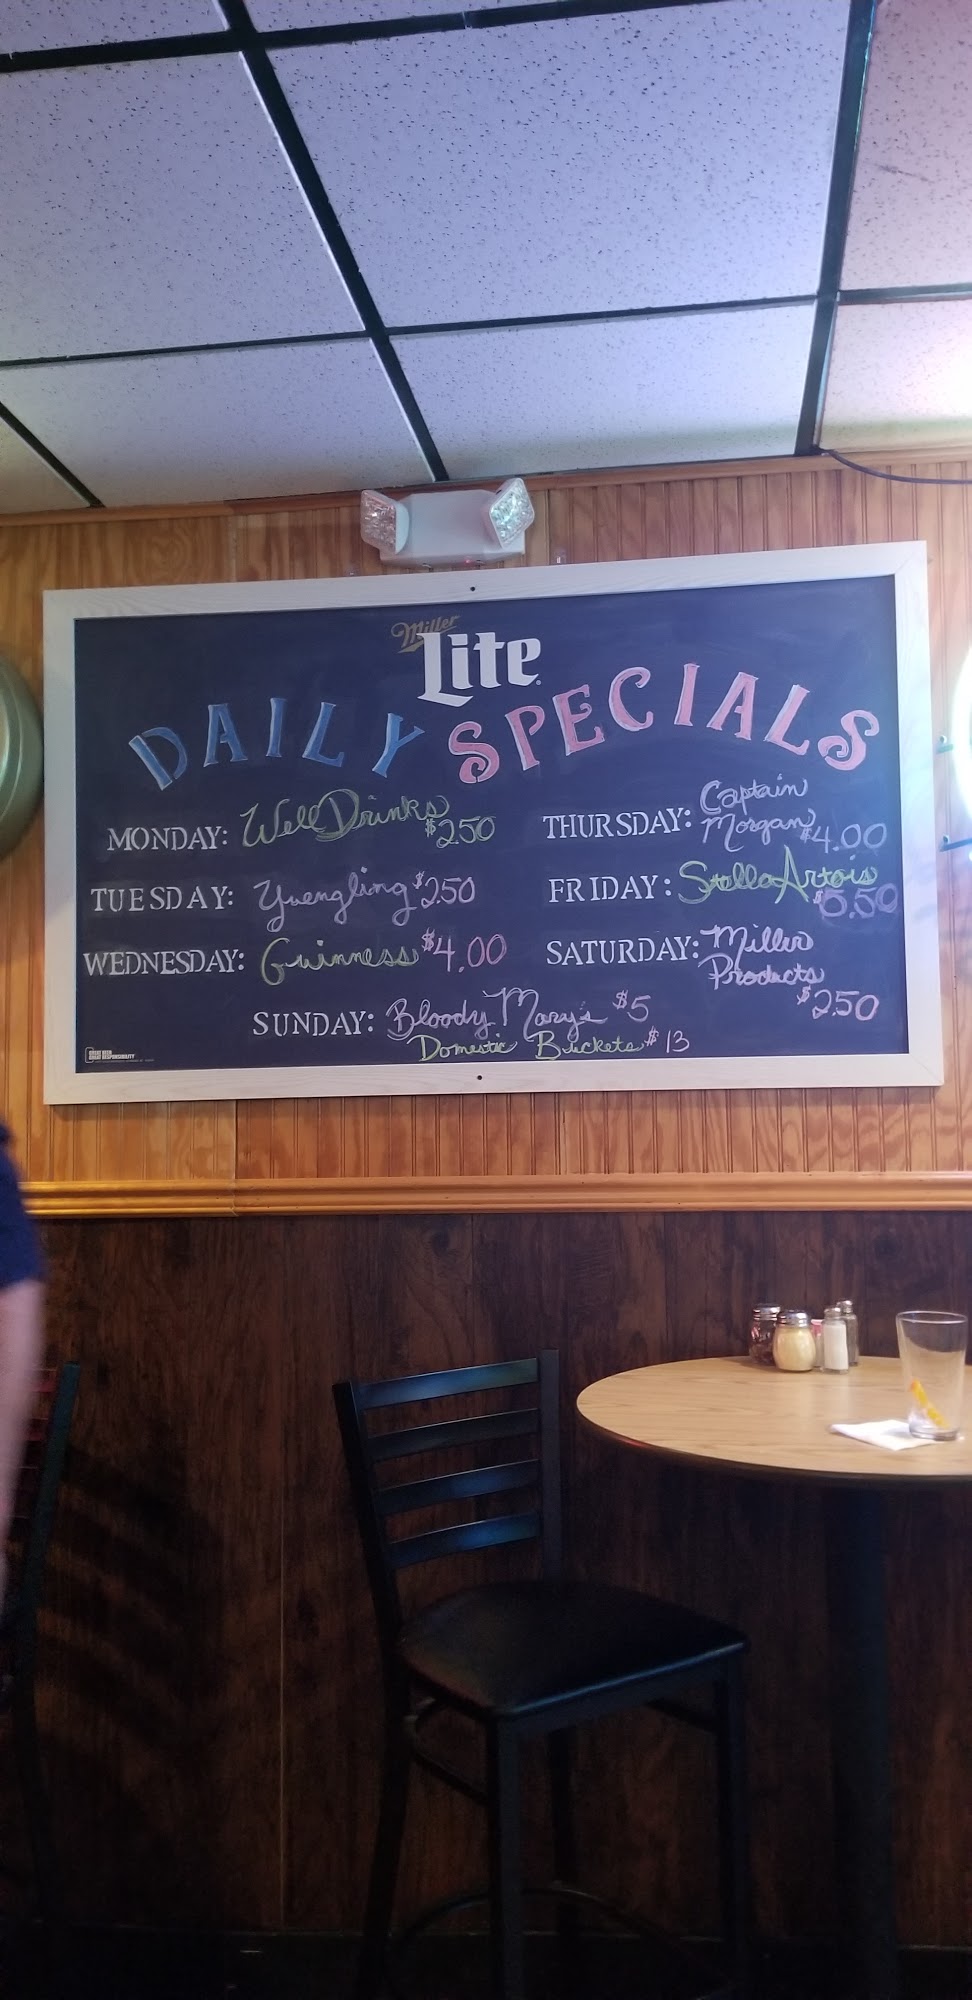 Miller
Lite
DAILY SPECIALS
MONDAY: Well Drinks $2.50
TUESDAY: Yuengling $2.50
WEDNESDAY: Guinness $4.00
THURSDAY: Captain
Morgan $4.00
FRIDAY: Stella Artois
$5.50
SATURDAY: Miller
Products
$2.50
SUNDAY: Bloody Mary's $5
Domestic Buckets $13
GREAT BEER
GREAT RESPONSIBILITY